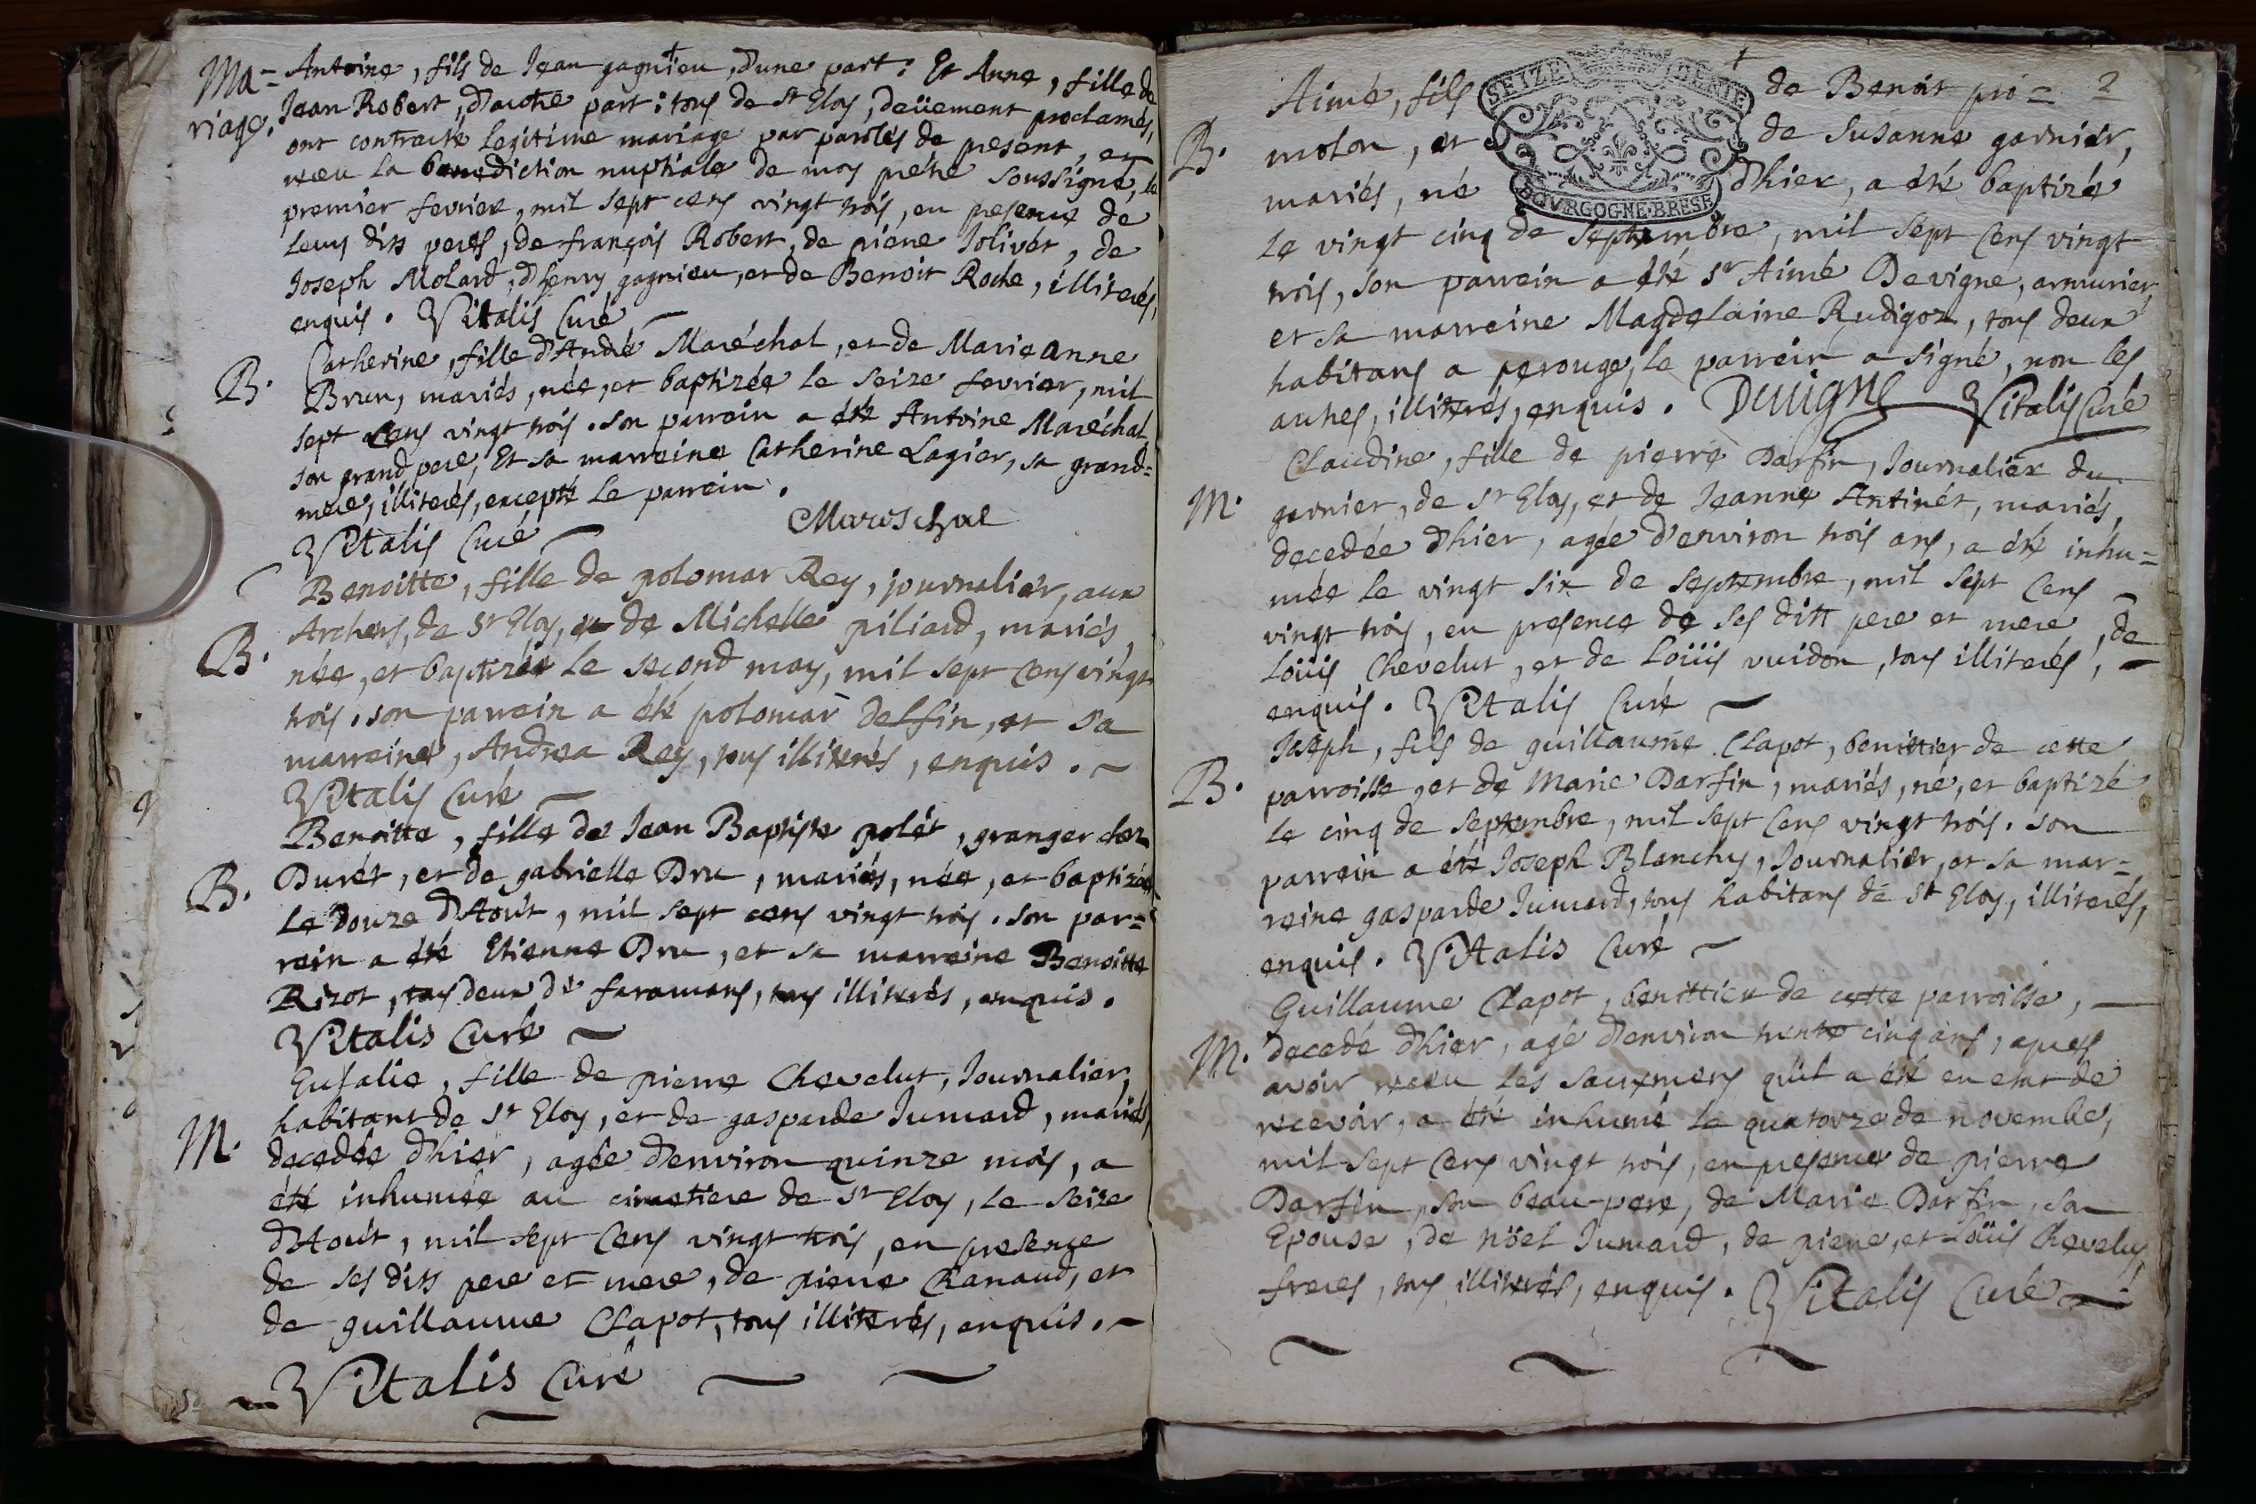 Ma= Antoine, fils de Jean gagnieu, d'une part: Et Anne, fille de
riage. Jean Robert, d'autre part: tous de St Eloy, deüement proclamés,
ont contracté legitime mariage par paroles de present, et
receu la benediction nuptiale de moy prétre soussigné, le
premier fevrier, mil sept cens vingt trois, en presence de
leurs dits peres, de françois Robert, de pierre Jolivét, de
Joseph Molard, d'henry gagnieu, et de Benoit Roche, illiterés,
enquis. Vitalis Curé
Catherine, fille d'André Maréchal, et de Marie anne
B. Brun, mariés, née, et baptizée le seize fevrier, mil
sept cens vingt trois. son parrain a été Antoine Maréchal
son grand pere, Et sa marraine Catherine Lagier, sa grand=
mere, illiterés, excepté le parrain.
Mareschal
Vitalis Curé
Benoitte, fille de polomar Rey, journalier, aux
B. Archers, de St Eloy, et de Michelle piliard, mariés,
née, et baptizée le second may, mil sept cens vingt
trois. son parrain a été polomar delfin, et sa
marraine, Andrea Rey, tous illiterés, enquis.
Vitalis Curé
Benoitte, fille de Jean Baptiste polét, granger chez
B. Durét, et de gabrielle Dru, mariés, née, et baptizée
le douze d'Août, mil sept cens vingt trois. son par=
rein a été Etienne Dru, et sa marreine Benoitte
Rizot, tous deux de faramans, tous illiterés, enquis.
Vitalis Curé
Eulalie, fille de pierre Chevelut, Journalier,
M. habitant de St Eloy, et de gasparde Jumard, mariés,
decedée d'hier, agée d'environ quinze mois, a
été inhumée au cimetiere de St Eloy, le seize
d'Août, mil sept cens vingt trois, en presence
de ses dits pere et mere, de pierre Chanaud, et
de guillaume Clapot, tous illiterés, enquis.
Vitalis Curé
SEIZE DENIE
BOVRGOGNE·BRESE
2
Aimé, fils de Benoit pro=
B. molon, et de Susanne garnier,
mariés, né d'hier, a été baptizé
le vingt cinq de septembre, mil sept cens vingt
trois, son parrein a été sr Aimé Devigne, armurier,
et sa marreine Magdelaine Rudigoz, tous deux
habitans a perouge, le parrein a signé, non les
autres, illiterés, enquis. Devigne Vitalis Curé
Claudine, fille de pierre Darfin, Journalier du
M. garnier, de St Eloy, et de Jeanne Antinét, mariés,
decedée d'hier, agée d'environ trois ans, a été inhu=
mée le vingt six de septembre, mil sept cens
vingt trois, en presence de ses dits pere et mere, de
Loüis Chevelut, et de Loüis vuidon, tous illiterés,
enquis. Vitalis Curé
Joseph, fils de guillaume Clapot, benittier de cette
B. parroisse, et de Marie Darfin, mariés, né, et baptizé
le cinq de septembre, mil sept cens vingt trois. son
parrein a été Joseph Blanchy, Journalier, et sa mar=
reine gasparde Jumard, tous habitans de St Eloy, illiterés,
enquis. Vitalis Curé
Guillaume Clapot, benittier de cette parroisse,
M. decedé d'hier, agé d'environ trente cinq ans, apres
avoir receu les sacremens qu'il a été en etat de
recevoir, a été inhumé le quatorze de novembre,
mil sept cens vingt trois, en presence de pierre
Darfin, son beau-pere, de Marie Darfin, son
Epouse, de nöel Jumard, de pierre, et Loüis Chevelut,
freres, tous illiterés, enquis. Vitalis Curé